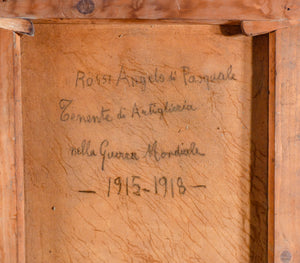 Rossi Angelo di Pasquale
Tenente di Artiglieria
nella Guerra Mondiale
— 1915-1918 —